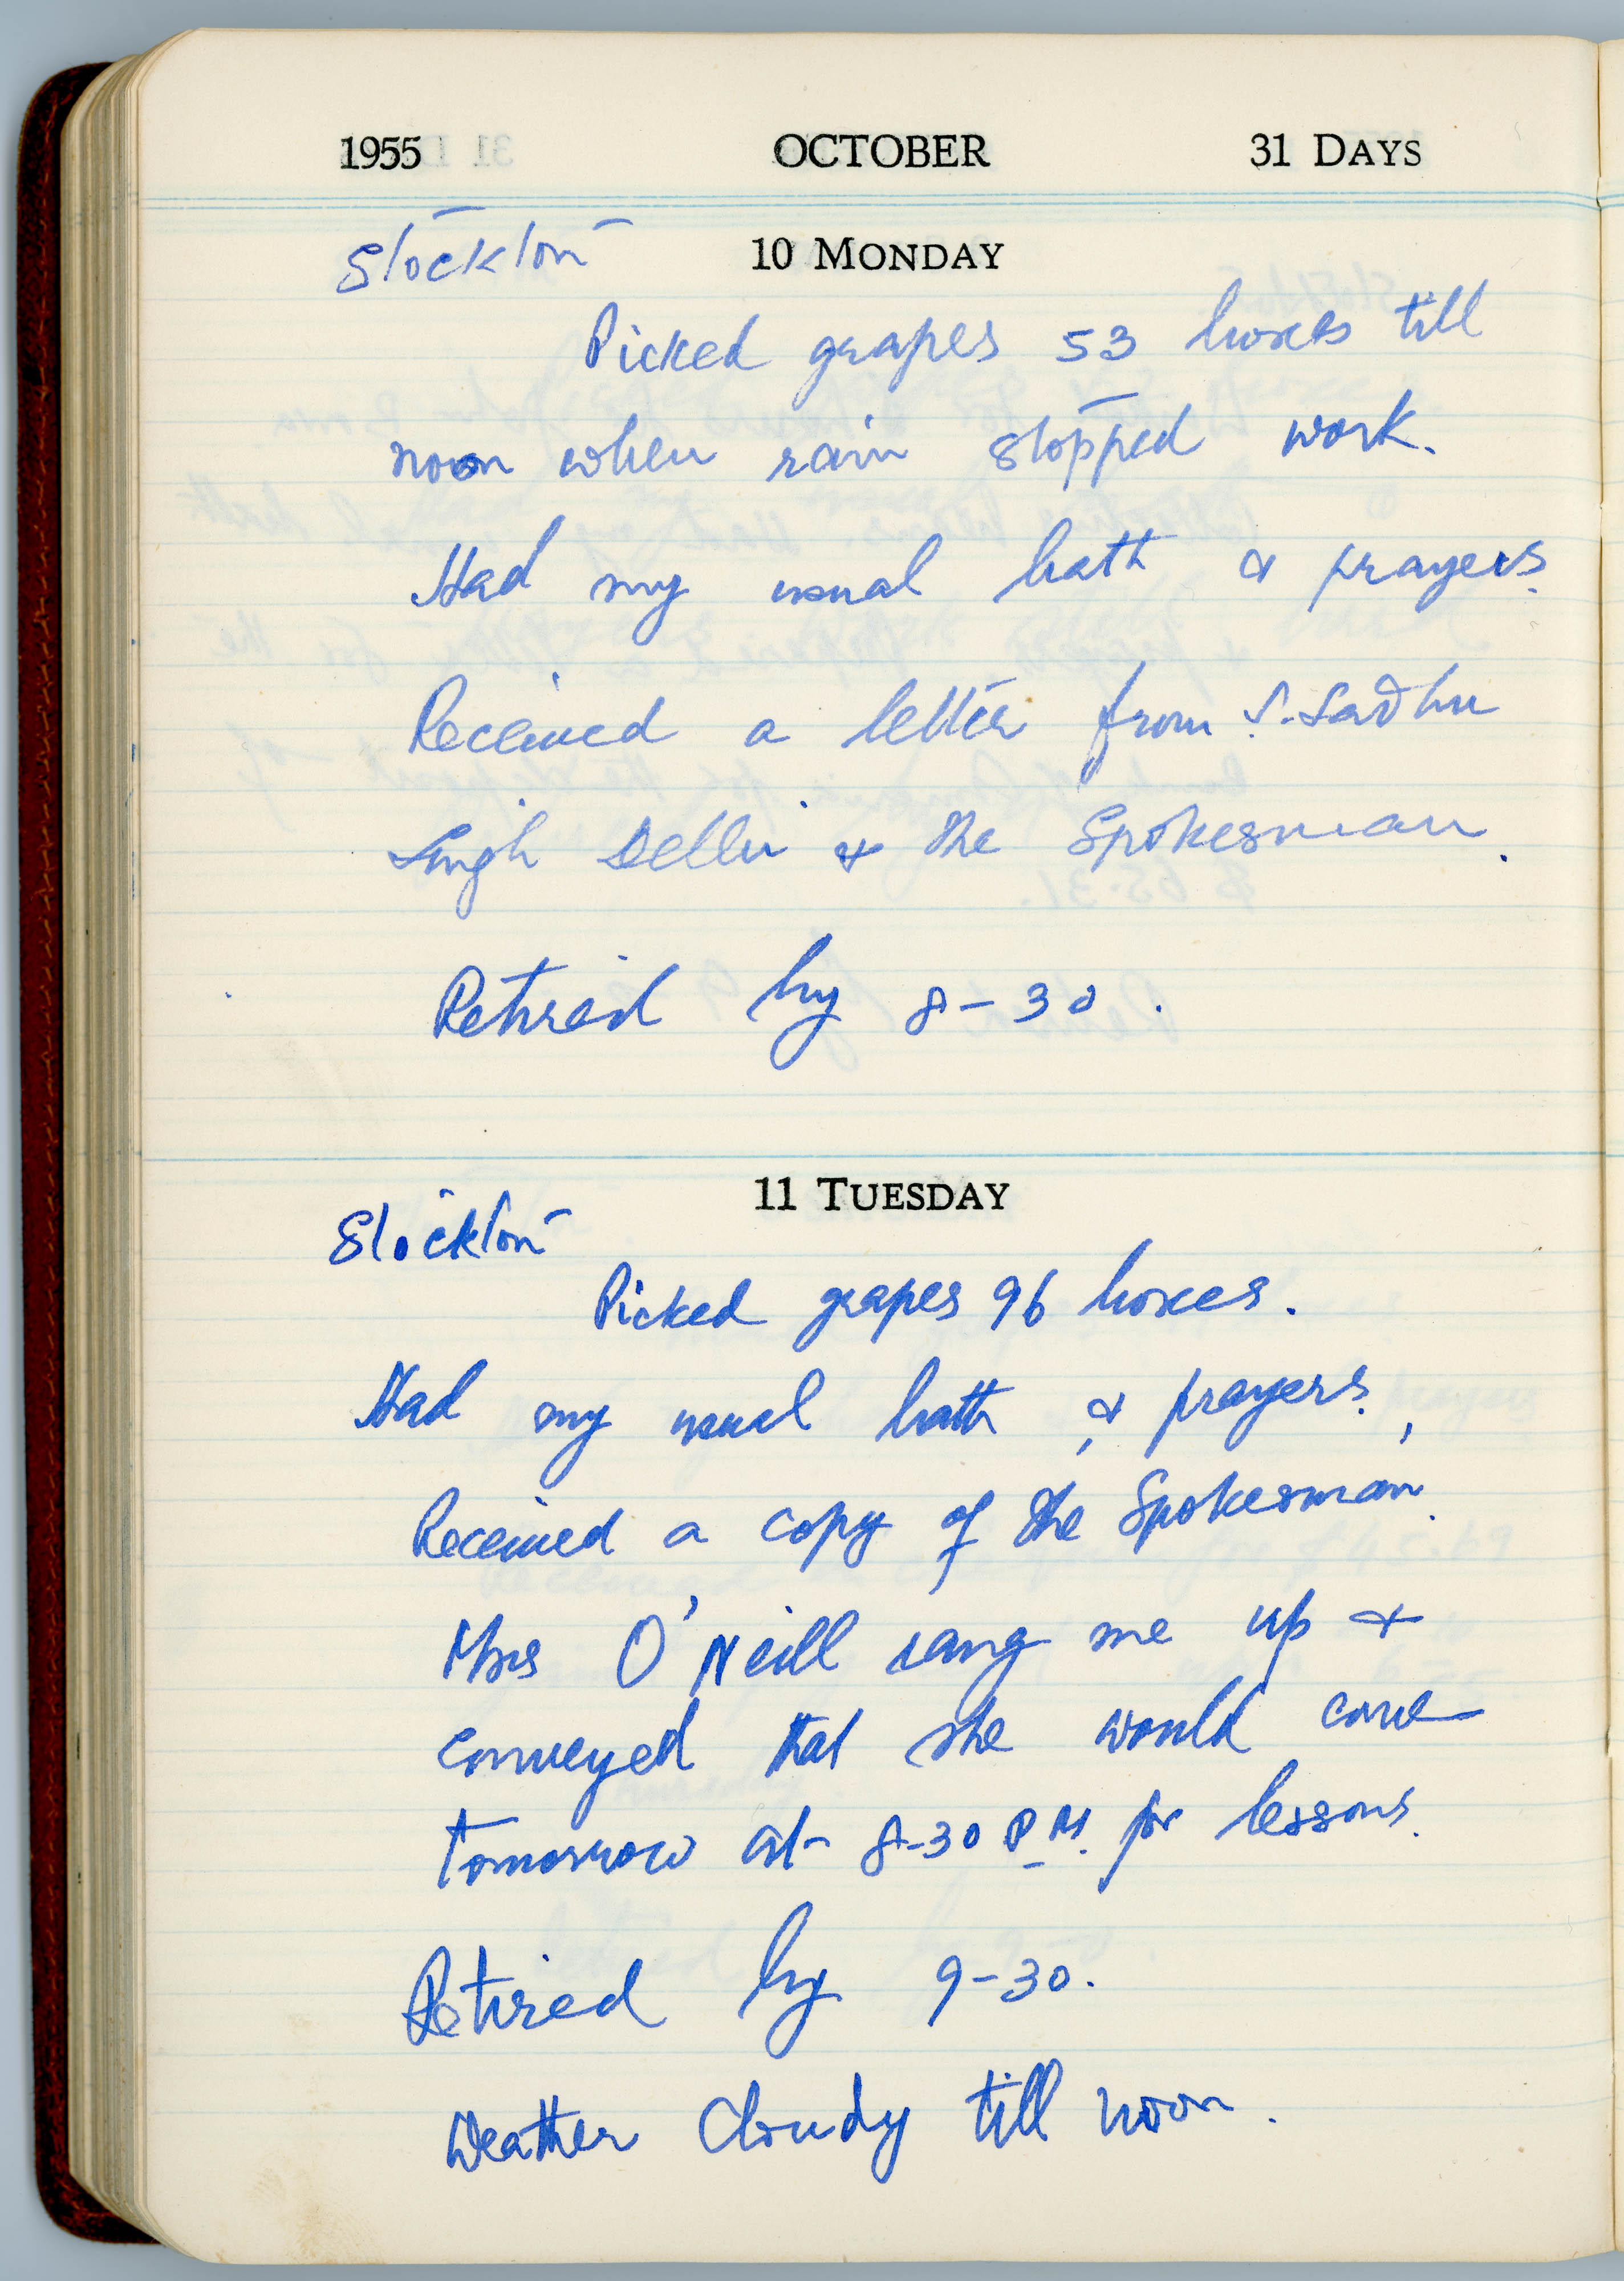 1955 OCTOBER 31 DAYS
10 MONDAY
Stockton
Picked grapes 53 boxes till
noon when rain stopped work.
Had my usual bath & prayers.
Received a letter from S. Sadhu
Singh Delhi & the Spokesman.
Retired by 8-30.
11 TUESDAY
Stockton
Picked grapes 96 boxes.
Had my usual bath & prayers.
Received a copy of the Spokesman.
Mrs O'Neill rang me up &
conveyed that she would come
tomorrow at 8-30 PM. for lessons.
Retired by 9-30.
Weather Cloudy till noon.